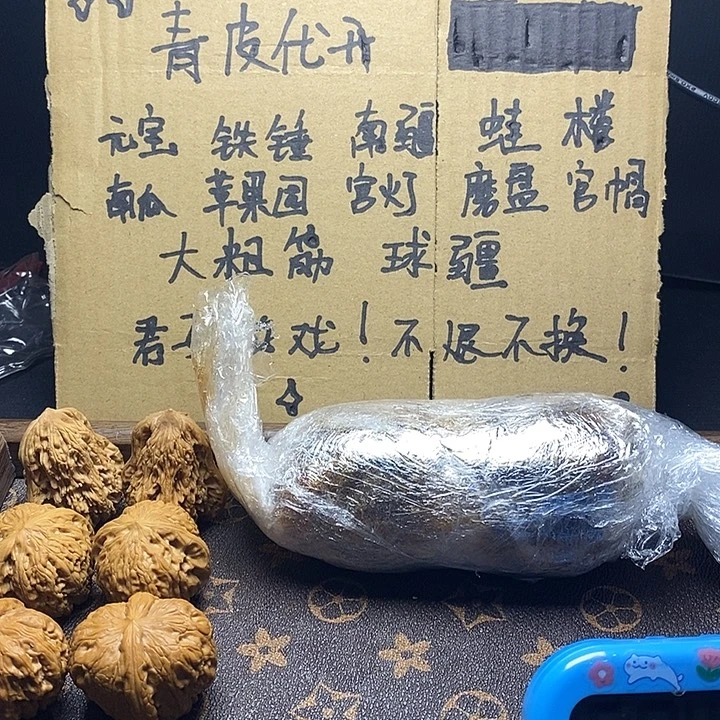 青皮代开
元宝 铁锤 南疆 蛙 楼
南瓜 苹果园 宫灯 磨盘 官帽
大粗筋 球疆
君子 戏！不退不换！